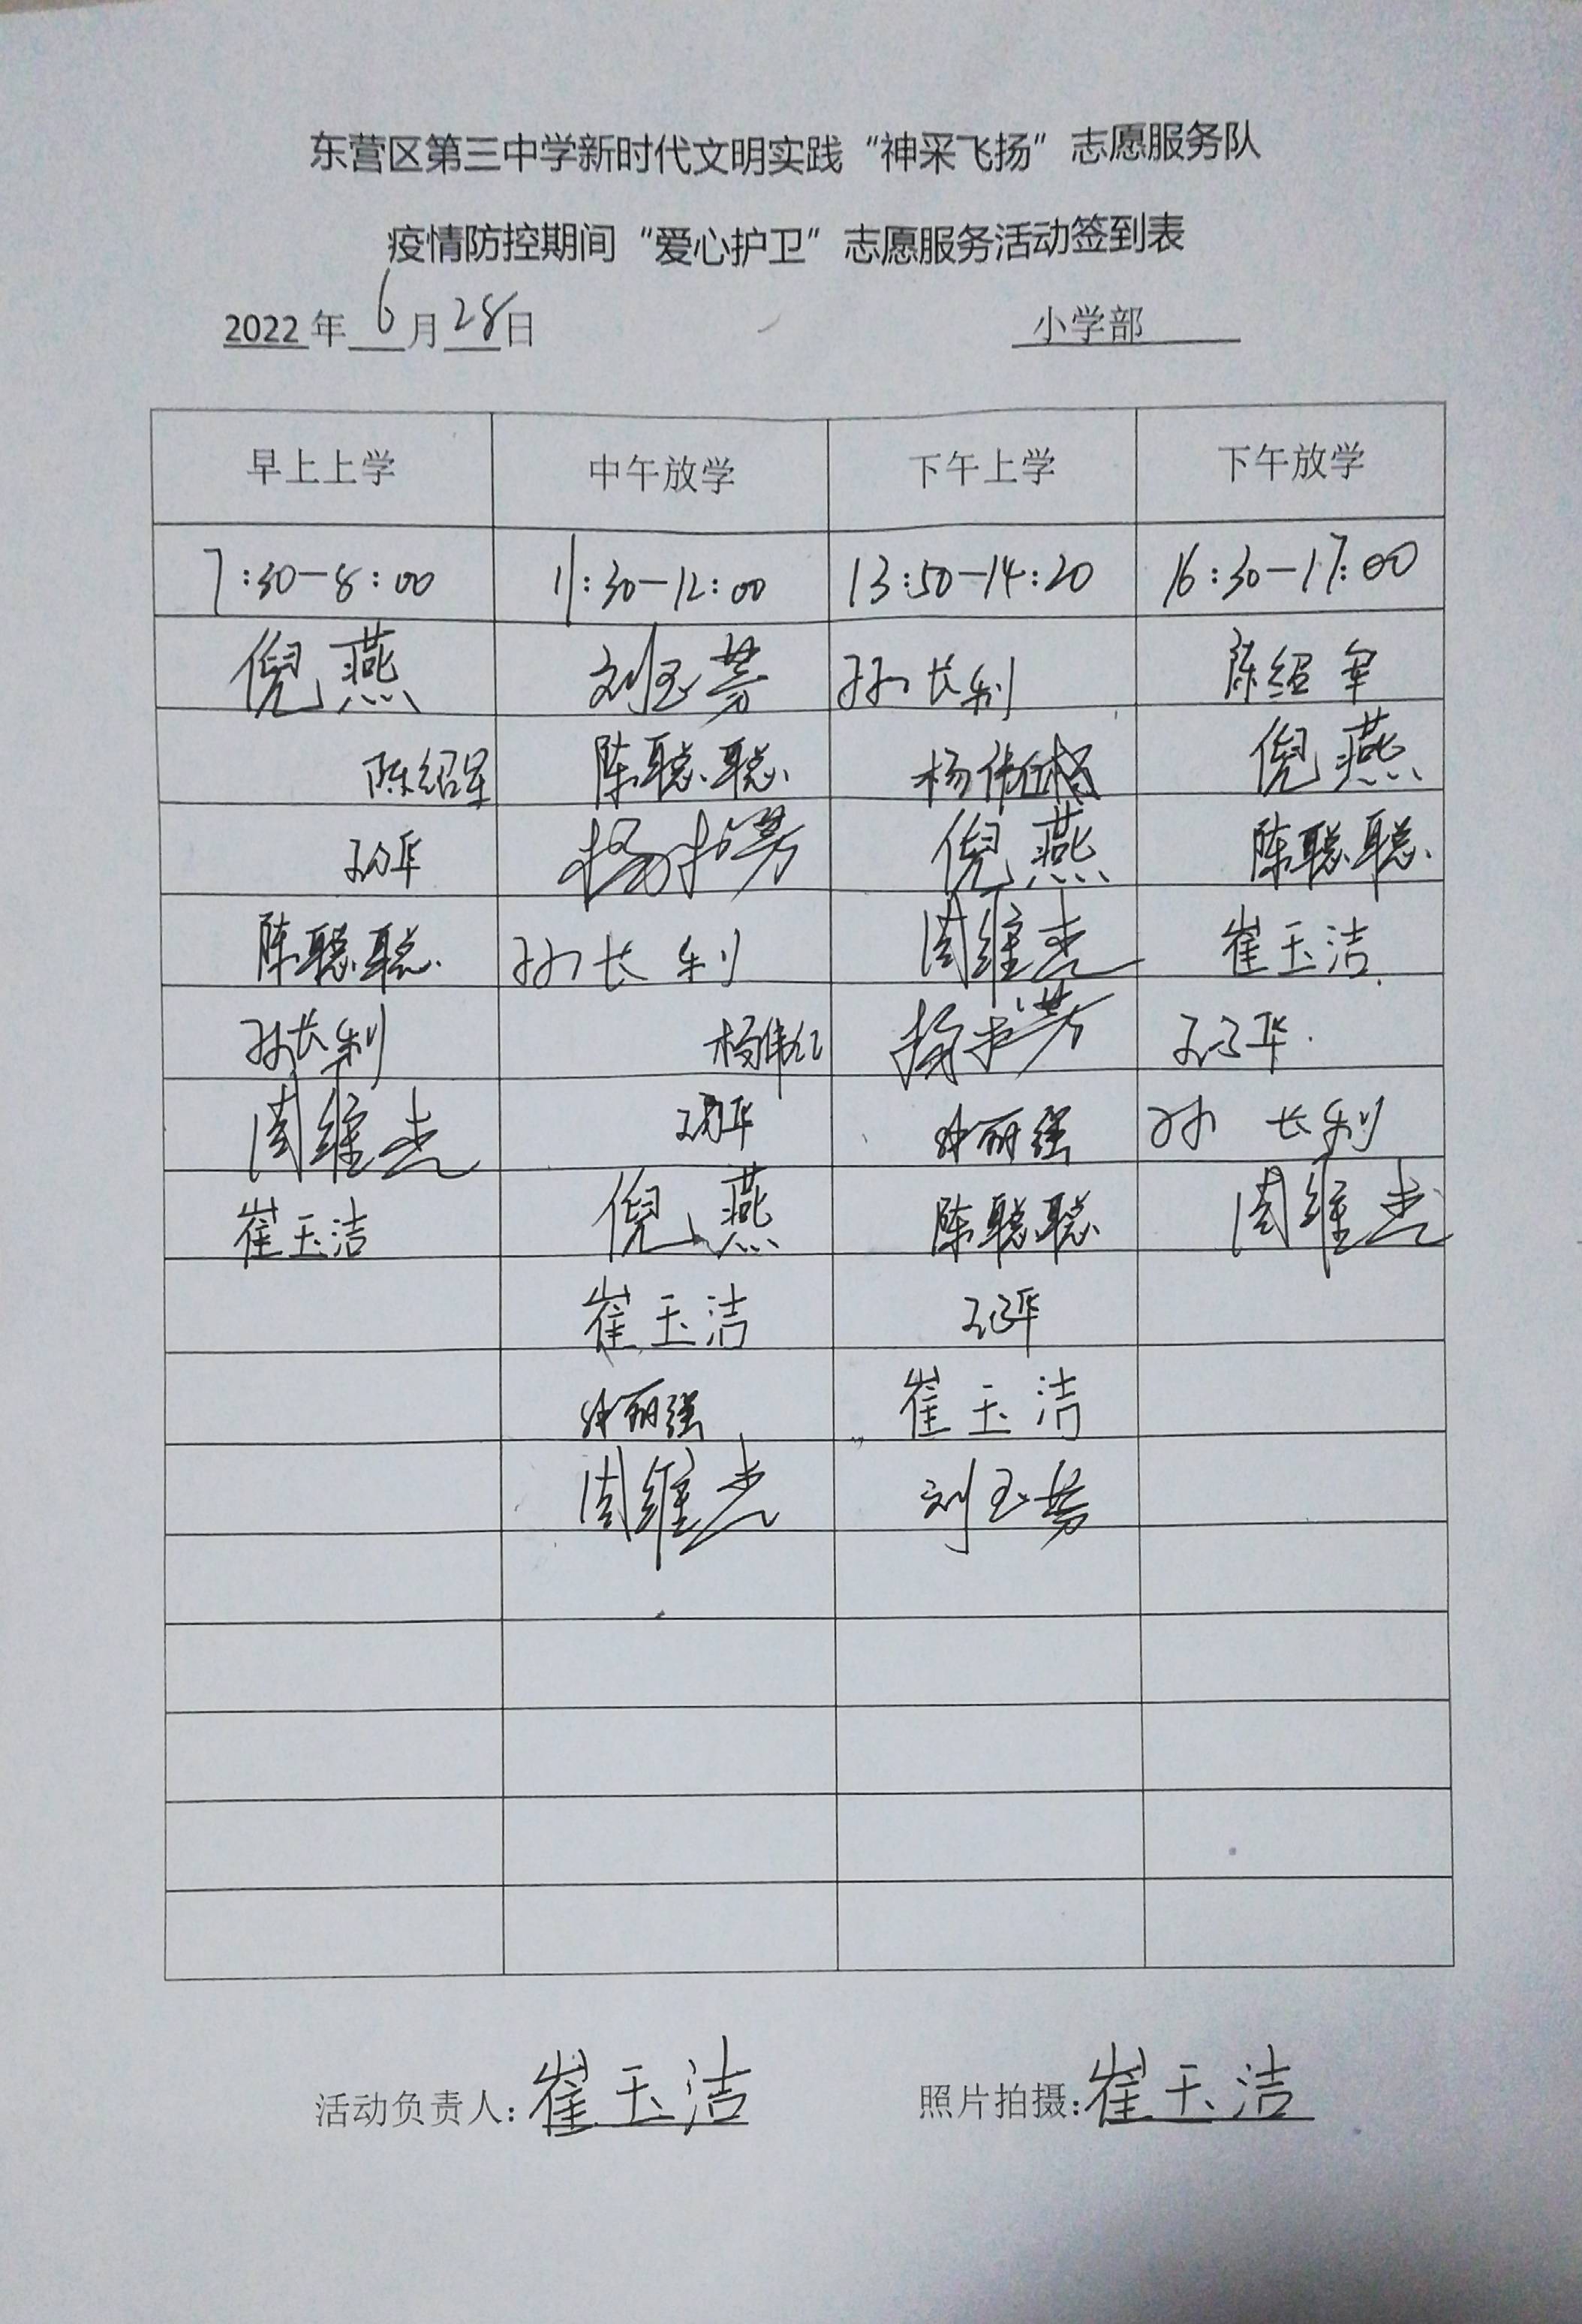 东营区第三中学新时代文明实践“神采飞扬”志愿服务队
疫情防控期间“爱心护卫”志愿服务活动签到表
2022年 6月28日 小学部
早上上学 中午放学 下午上学 下午放学
7:30-8:00 11:30-12:00 13:50-14:20 16:30-17:00
倪燕 刘玉芳 孙长利 陈绍军
陈绍军 陈聪聪 杨伟 倪燕
杨 芳 倪燕 陈聪聪
陈聪聪 孙长利 周维杰 崔玉洁
孙长利 杨伟红 杨 芳
周维杰 丽强 孙长利
崔玉洁 倪燕 陈聪聪 周维杰
崔玉洁
丽强 崔玉洁
周维杰 刘玉芳
活动负责人:崔玉洁 照片拍摄:崔玉洁